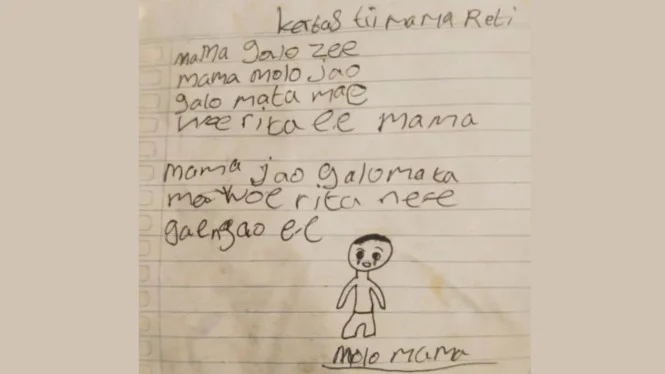 kertas tii mama Reti
mama galo zee
mama molo jao
galo mata mae
woe rita ee mama
mama jao galo mata
mae woe rita ne e
gae ngao ee
molo mama